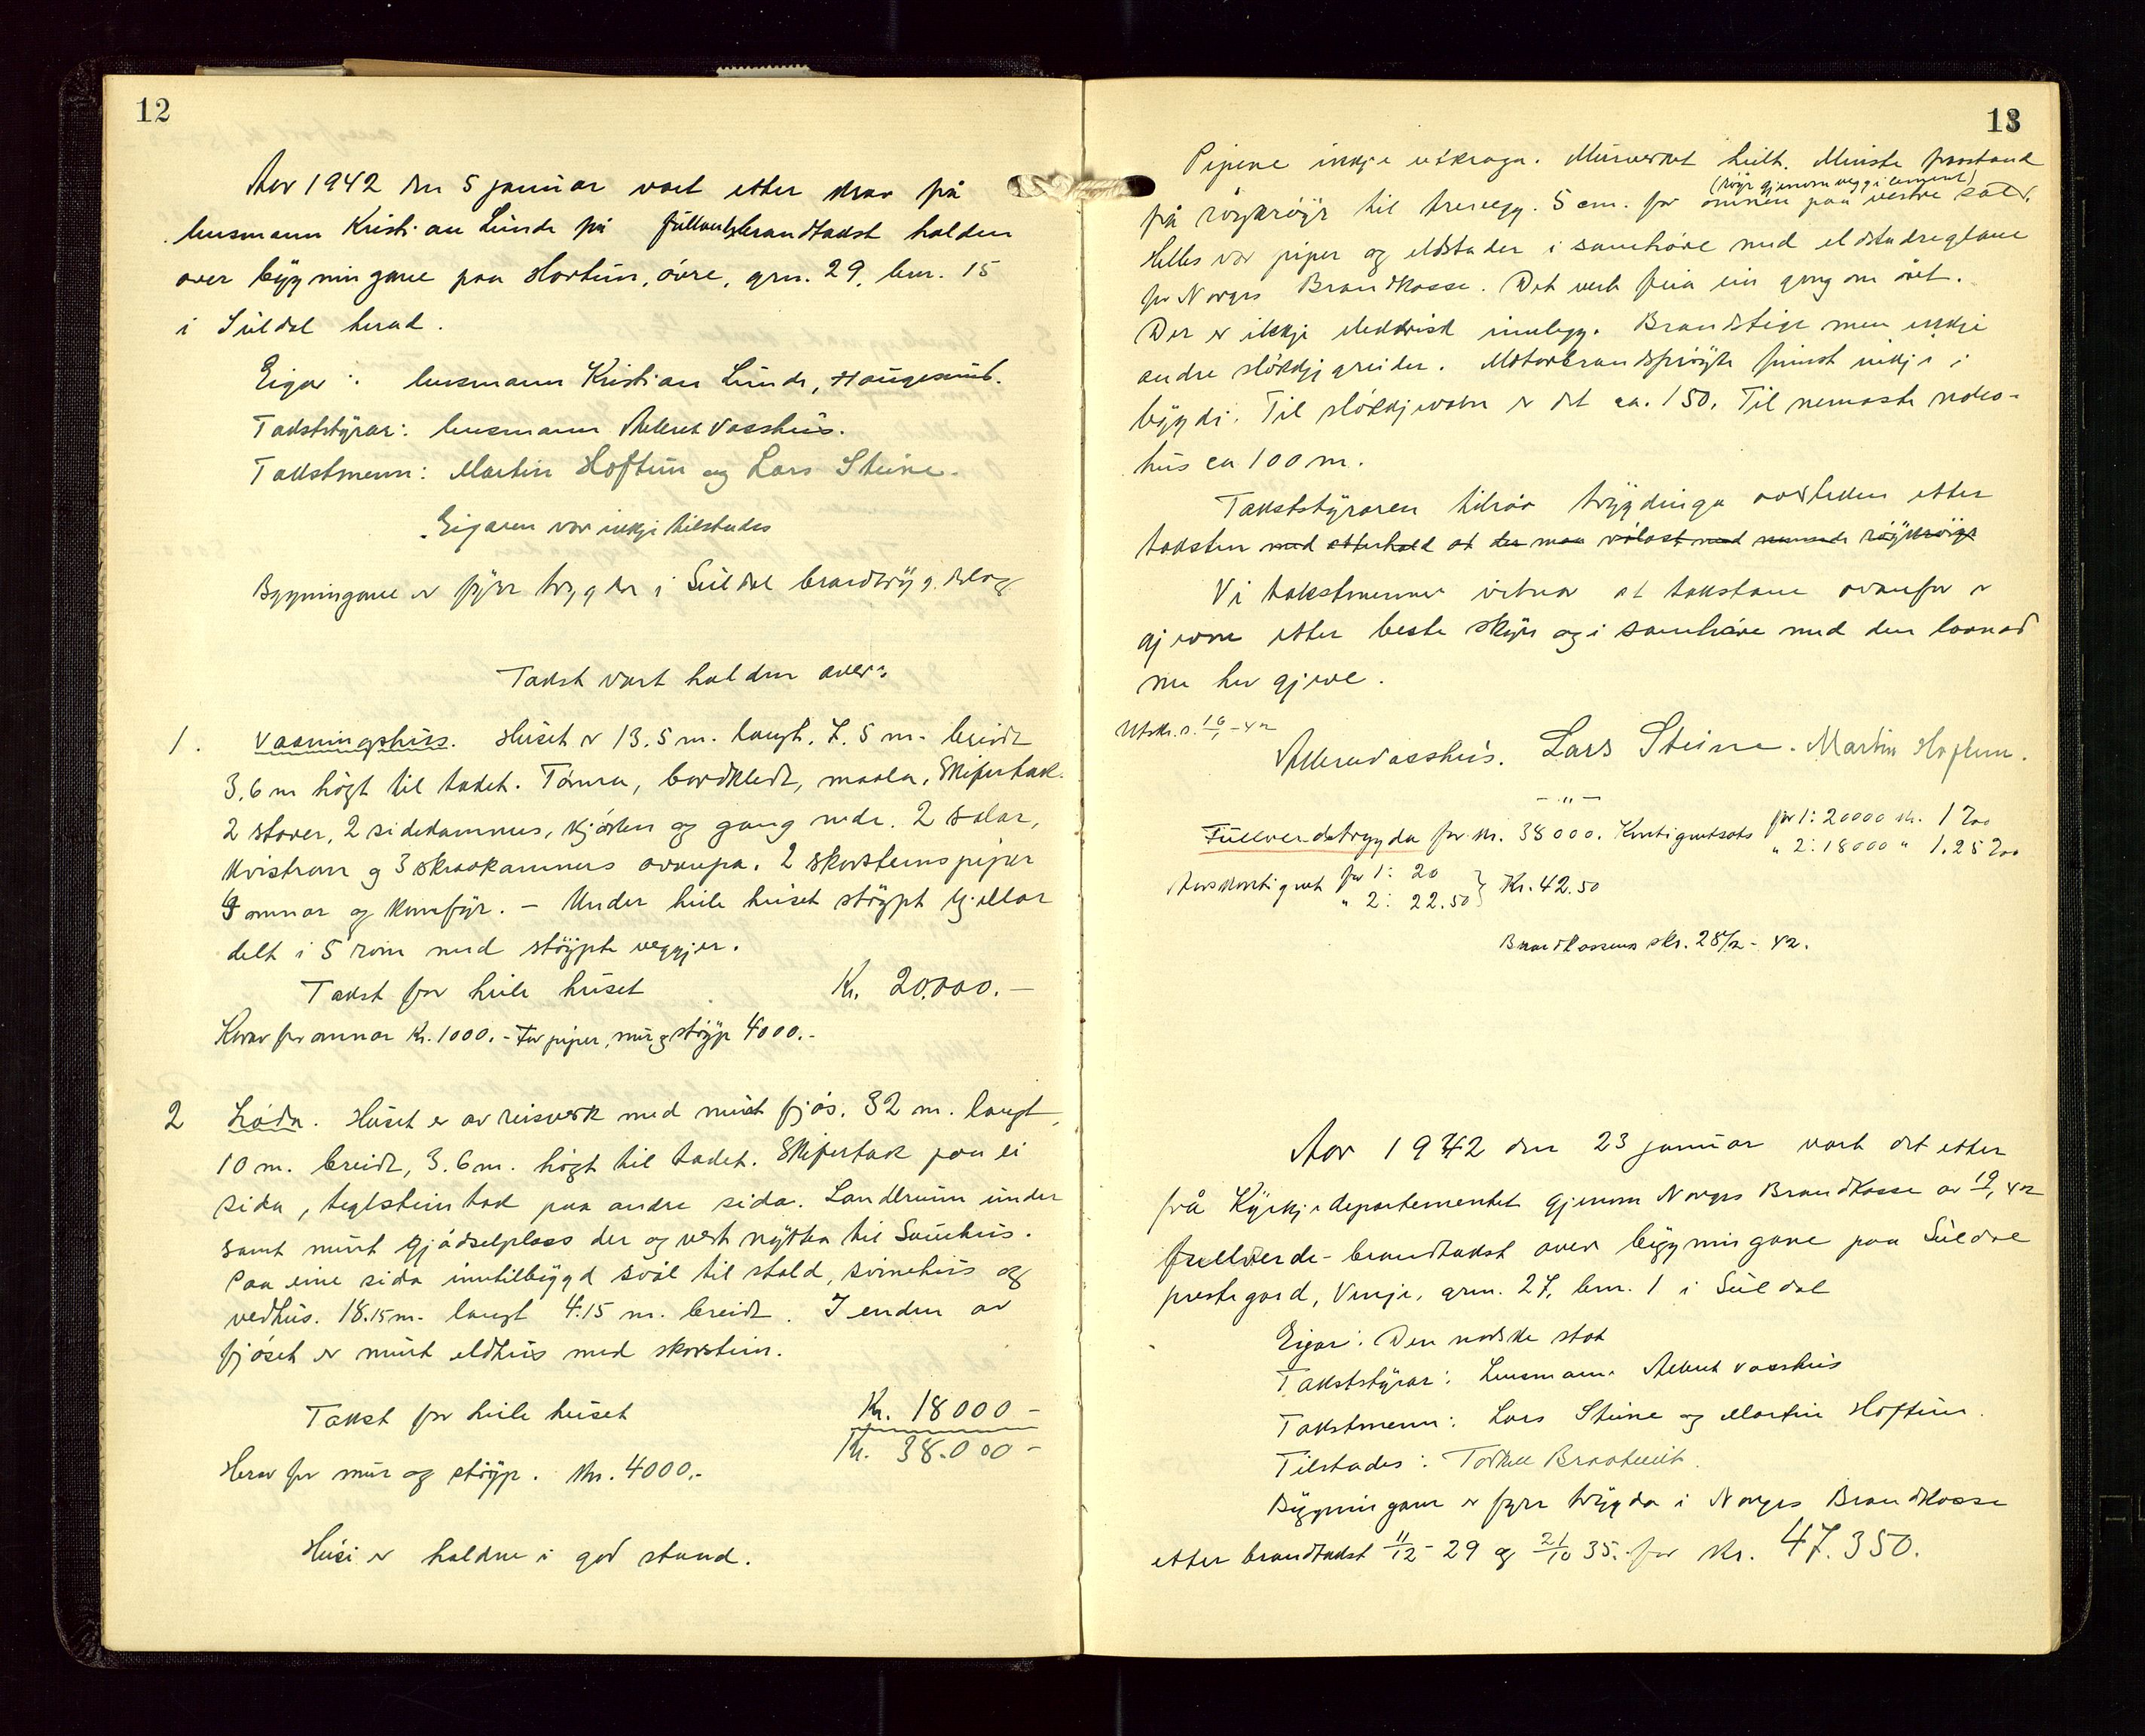 12
Aar 1942 den 5 januar vart etter krav frå
lensmann Kristian Lunde på fullverdsbrandtakst halden
over bygningane paa Hoftun, øvre, grn. 29, brn. 15
i Suldal herad.
Eigar: lensmann Kristian Lunde, Haugesund.
Takststyrar: lensmann Albret Vasshus.
Takstmenn: Martin Hoftun og Lars Steine.
Eigaren var inkje tilstades
Bygningane er fyrr trygda i Suldal brandtrygdelag.
Takst vart halden over:
1. Vaaningshus. Huset er 13,5 m. langt, 7,5 m. breidt
3,6 m høgt til taket. Tømra, bordkledt, maala, Skifertak.
2 stover, 2 sidekammers, kjøken og gang nede. 2 salar,
kvistrom og 3 skraakammers ovanpa. 2 skorsteinspiper
4 omnar og komfyr. - Under heile huset støypt kjellar
delt i 5 rom med støypte veggjer.
Takst for heile huset Kr. 20.000.-
Herav for omnar Kr. 1000.- For piper, mur og støyp 4000.-
2 Løda. Huset er av reisverk med murt fjøs. 32 m. langt,
10 m. breidt, 3.6 m. høgt til taket. Skifertak paa ei
sida, teglsteintak paa andre sida. Landbruim under
samt murt gjødselplass der og vert nytta til Sauehus.
Paa eine sida inntilbygd svål til stald, svinehus og
vedhus. 18.15 m. langt 4.15 m. breidt. I enden av
fjøset er murt eldhus med skorstein.
Takst for heile huset Kr. 18000 -
Kr. 38.000 -
Herav for mur og støyp. Kr. 4000.-
Husi er haldne i god stand.
13
Pipene inkje utkraga. Murverket heilt. Minste fraastand
(røyr gjenom vegg i cement)
frå røykrøyr til trevegg. 5 cm. for omnen paa vestre sal.
Helles var piper og eldstader i samhøve med eldstadreglane
for Norges Brandkasse. Det vert feia ein gong om året.
Der er ikkje elektrisk innlegg. Brandstige men inkje
andre sløkkjegreider. Motorbrandsprøyte finnst inkje i
bygdi. Til sløkkjevatn er det ca. 150. Til nemaste nabo-
hus ca 100 m.
Takststyraren tilrår trygdinga avsteken etter
taksten med etterhald at der maa vølast med nemnde røykrøyr
Vi takstmenner vitnar at takstane ovanfor er
gjevne etter beste skjøn og i samhøve med den lovnad
me hev gjeve.
Utskr. s. 16/1-42
Albret Vasshus. Lars Steine. Martin Hoftun.
- " -
Fullverdetrygda for kr. 38000. Kontigentsats for 1: 20000 kr. 1 ‰
" 2: 18000 " 1.25 ‰
Aarskontigent for 1: 20
" 2: 22.50 } Kr. 42.50
Brandkassens skr. 28/2-42.
Aar 1942 den 23 januar vart det etter
frå Kyrkjedepartementet gjenom Norges Brandkasse av 19/1 42
fullverde-brandtakst over bygningane paa Suldal
prestegard, Vinje, grn. 27, brn. 1 i Suldal
Eigar: Den norske stat
Takststyrar: Lensmann Albret Vasshus
Takstmenn: Lars Steine og Martin Hoftun.
Tilstades: Torkell Bråtveit.
Bygningane er fyrr trygda i Norges Brandkasse
etter brandtakst 11/12-29 og 21/10 35. for kr. 47.350.